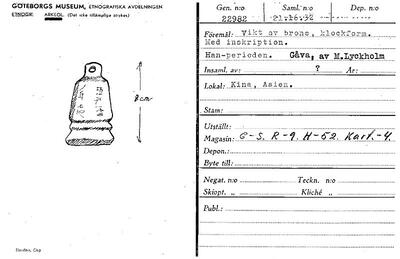 GÖTEBORGS MUSEUM, ETNOGRAFISKA AVDELNINGEN
ETNOGR. ARKEOL. (Det icke tillämpliga strykes)
8 cm
Gen. n:o Saml. n:o Dep. n:o
22982 21.26.32
Föremål: Vikt av brons, klockform.
Med inskription.
Han-perioden. Gåva, av M.Lyckholm
Insaml. av: ? År:
Lokal: Kina, Asien.
Stam:
Utställt:
Magasin: G-S. R-9. H-52. Kart.-4.
Depon.:
Byte till:
Negat. n:o Teckn. n:o
Skiopt. „ Kliché „
Publ.: